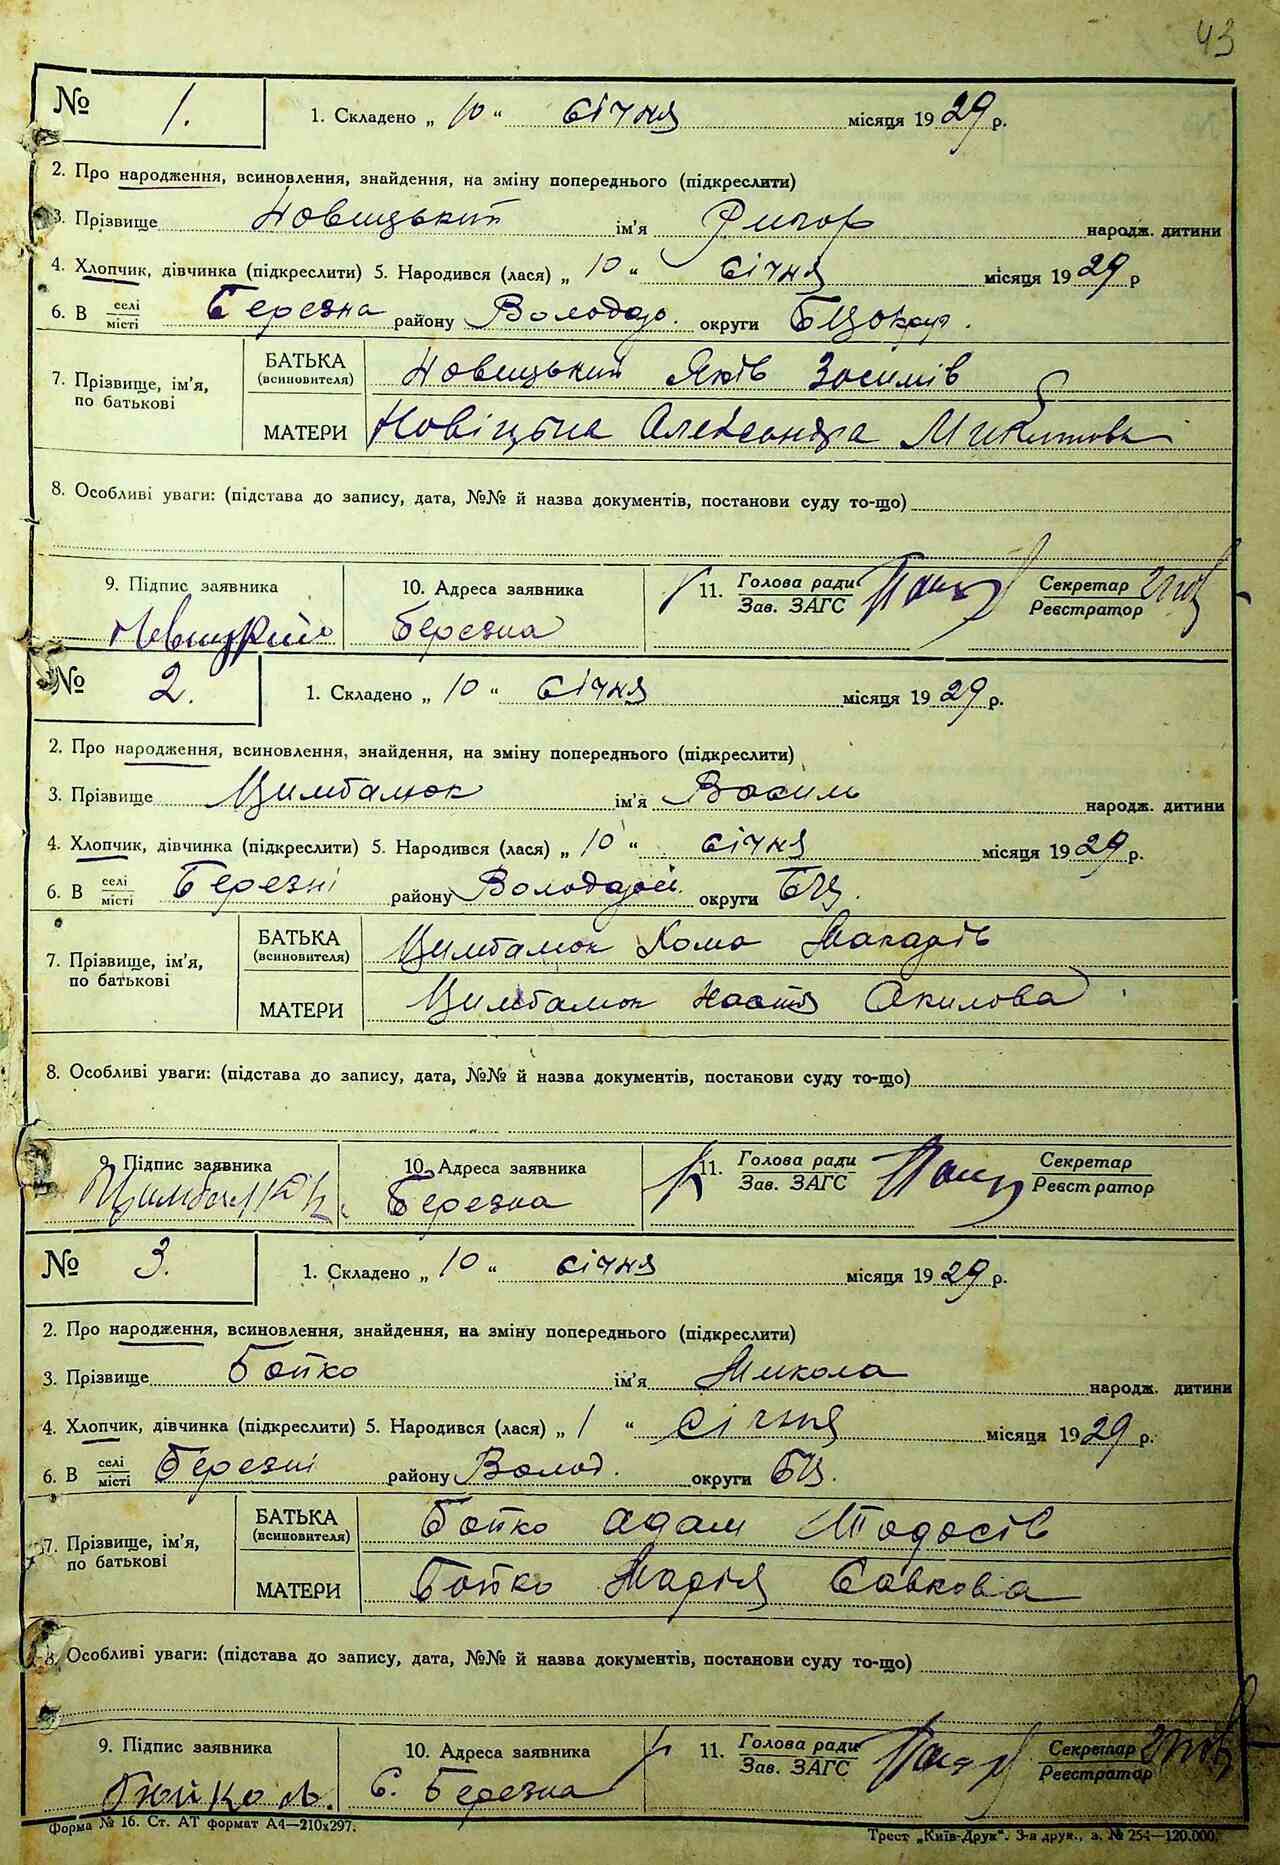 43
№ 1. 1. Складено „ 10 “ січня місяця 1929 р.
2. Про народження, всиновлення, знайдення, на зміну попереднього (підкреслити)
3. Прізвище Новицький ім'я Ригор народж. дитини
4. Хлопчик, дівчинка (підкреслити) 5. Народився (лася) „ 10 “ січня місяця 1929 р
6. В селі/місті Березна району Володар. округи БЦокруг.
7. Прізвище, ім'я, по батькові
БАТЬКА (всиновителя) Новицький Яків Зосимів
МАТЕРИ Новіцька Олександра Микитова
8. Особливі уваги: (підстава до запису, дата, №№ й назва документів, постанови суду то-що)
9. Підпис заявника 10. Адреса заявника 11. Голова ради/Зав. ЗАГС Секретар/Реєстратор
Новицкий Березна
№ 2. 1. Складено „ 10 “ січня місяця 1929 р.
2. Про народження, всиновлення, знайдення, на зміну попереднього (підкреслити)
3. Прізвище Цимбалюк ім'я Василь народж. дитини
4. Хлопчик, дівчинка (підкреслити) 5. Народився (лася) „ 10 “ січня місяця 1929 р.
6. В селі/місті Березні району округи БЦ.
7. Прізвище, ім'я, по батькові
БАТЬКА (всиновителя) Цимбалюк Хома Макарів
МАТЕРИ Цимбалюк Настя Окилова
8. Особливі уваги: (підстава до запису, дата, №№ й назва документів, постанови суду то-що)
9. Підпис заявника 10. Адреса заявника 11. Голова ради/Зав. ЗАГС Секретар/Реєстратор
Цимбалюк Березна
№ 3. 1. Складено „ 10 “ січня місяця 1929 р.
2. Про народження, всиновлення, знайдення, на зміну попереднього (підкреслити)
3. Прізвище Бойко ім'я Микола народж. дитини
4. Хлопчик, дівчинка (підкреслити) 5. Народився (лася) „ 1 “ січня місяця 1929 р.
6. В селі/місті Березні району Волод. округи БЦ.
7. Прізвище, ім'я, по батькові
БАТЬКА (всиновителя) Бойко Адам Тодосів
МАТЕРИ Бойко Марія Савкова
8. Особливі уваги: (підстава до запису, дата, №№ й назва документів, постанови суду то-що)
9. Підпис заявника 10. Адреса заявника 11. Голова ради/Зав. ЗАГС Секретар/Реєстратор
С. Березна
Форма № 16. Ст. АТ формат А4—210х297. Трест „Київ-Друк“. 3-я друк., з. № 254—120.000.